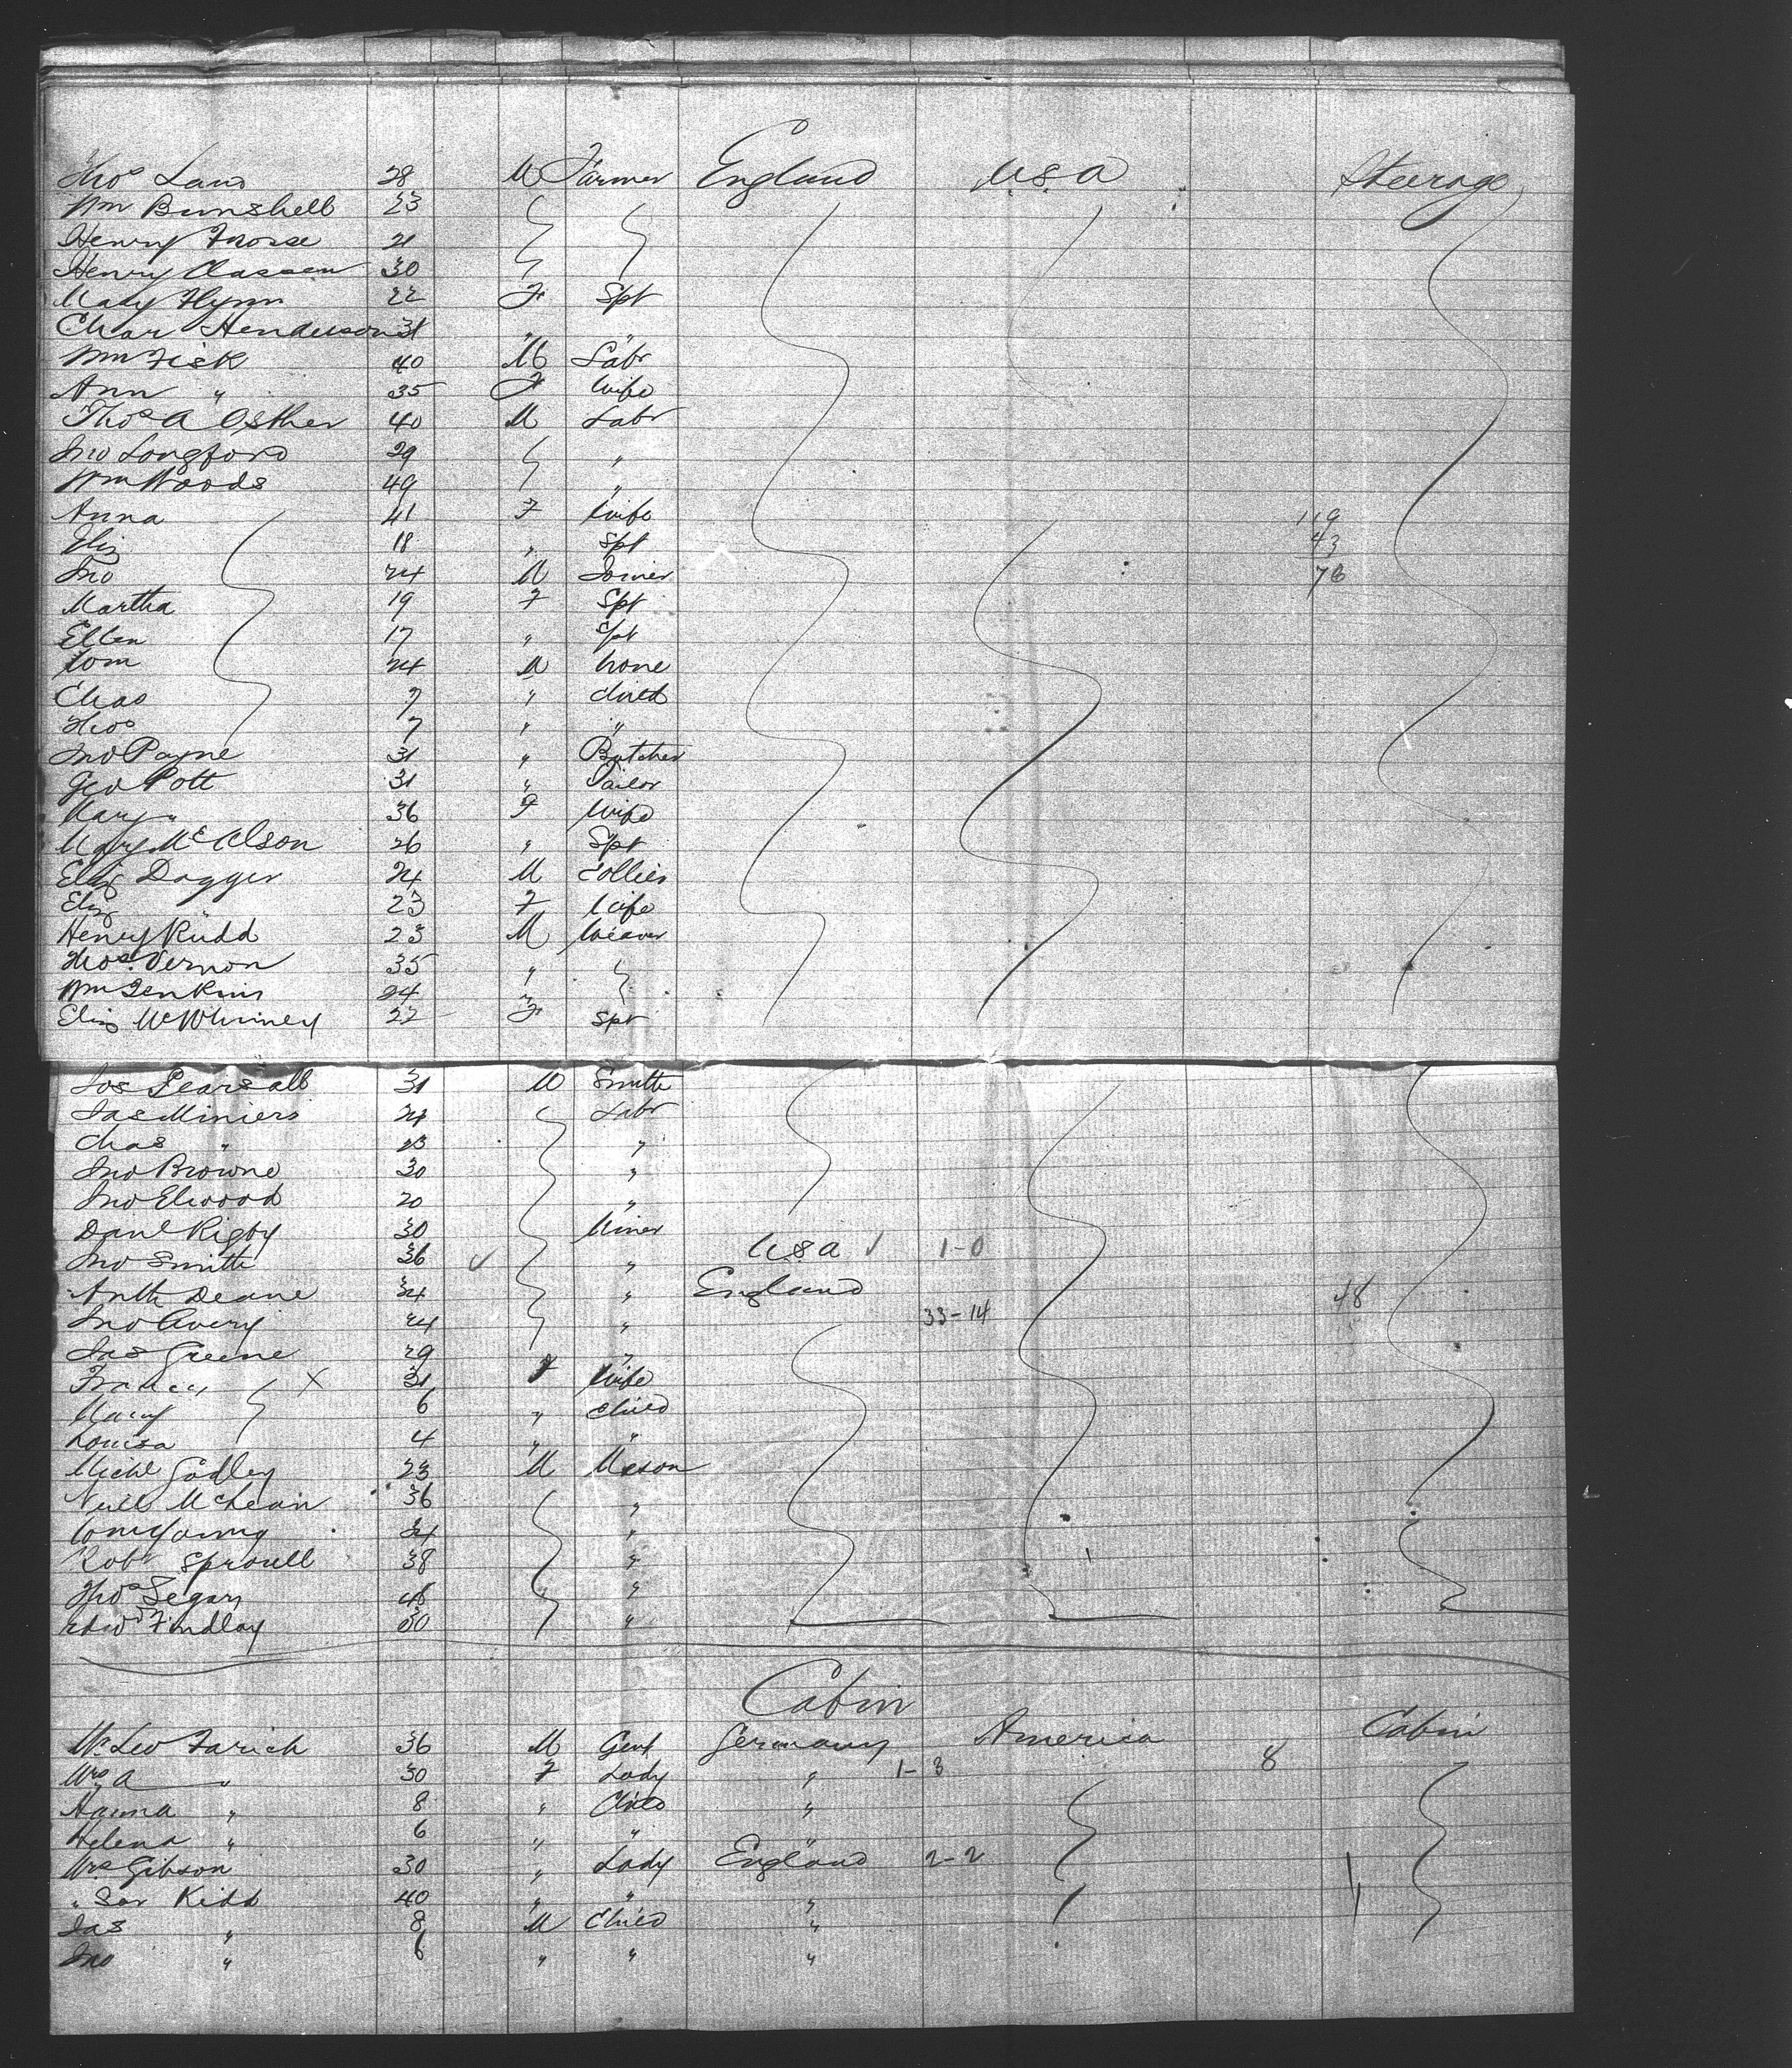 Thos Land 28 M Farmer England U.S.A Steerage
Wm Bunshell 23
Henry Frosse 21
Henry Classen 30
Mary Flynn 22 F Spt
Char Henderson 31 " "
Wm Fisk 40 M Labr
Ann " 35 F Wife
Thos A Osther 40 M Labr
Jno Longford 29 "
Wm Woods 49 "
Anna 41 F Wife 119
Eliz 18 " Spt 43
Jno 24 M Joiner 76
Martha 19 F Spt
Ellen 17 " Spt
Wm 24 M None
Chas 9 " Child
Thos 7 " "
Jno Payne 31 " Butcher
Geo Pott 31 " Tailor
Mary " 36 F Wife
Mary McAlson 26 " Spt
Elij Dagger 24 M Collier
Eliz 23 F Wife
Henry Rudd 23 M Weaver
Thos Vernon 35 "
Wm Jenkins 24 "
Eliz McWhinney 22 F Spt
Jos Pearsall 31 M Smith
Jas Miniers 24 Labr
Chas " 23 "
Jno Browne 30 "
Jno Elwood 20 "
Danl Rigby 30 Miner
Jno Smith 36 " USA 1-0
Anth Deane 34 " England 48
Jno Avery 24 " 33-14
Jas Greene 29 "
Frances X 31 F Wife
Mary 6 " Child
Louisa 4 " "
Michl Godley 23 M Mason
Neill McLean 36 "
Wm Young 24 "
Robt Sproull 38 "
Thos Segar 48 "
Edwd Findlay 30 "
Cabin
Mr Leo Farich 36 M Gent Germany America Cabin
Mrs A " 30 F Lady " 1-3 8
Hanna " 8 " Child "
Helena " 6 " " "
Mrs Gibson 30 " Lady England 2-2
" Sar Kidd 40 " " "
Jas " 8 M Child "
Jno " 6 " " "